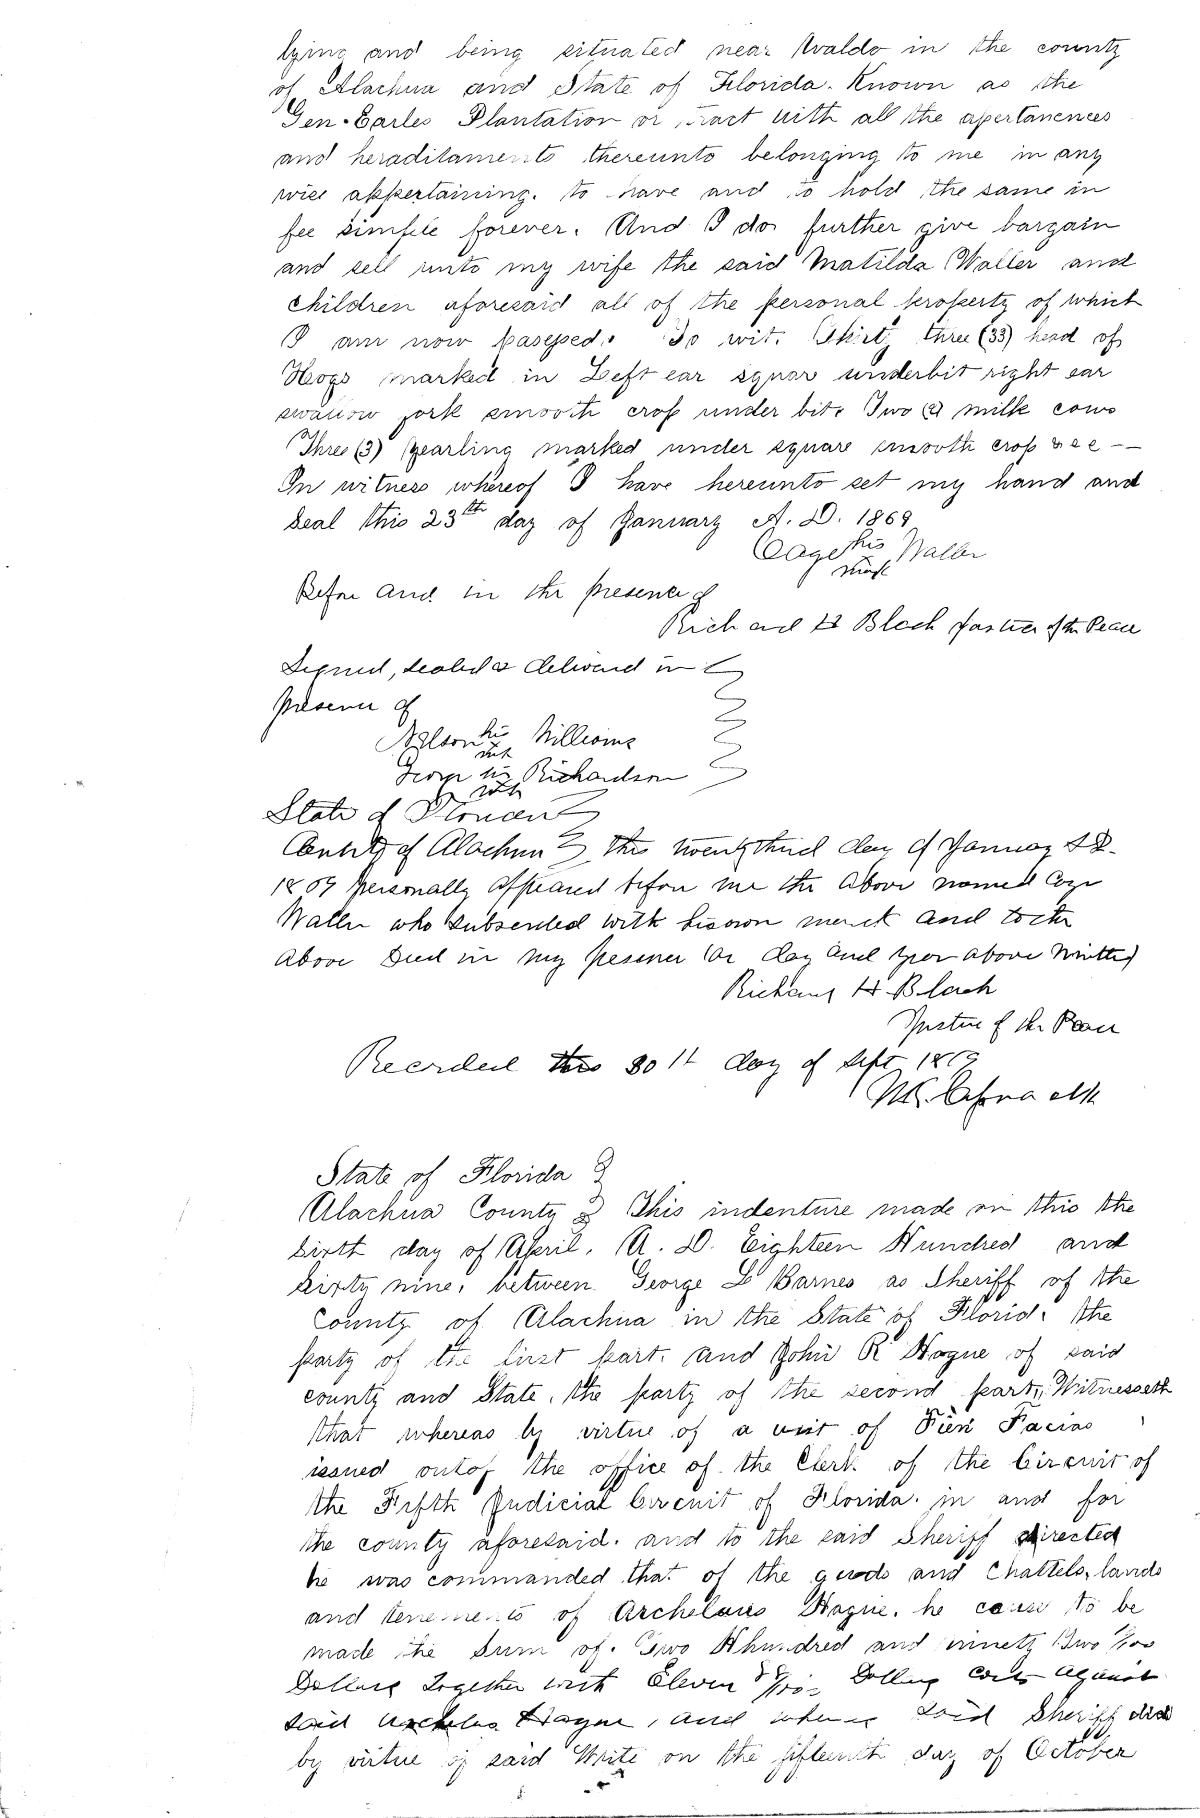 lying and being situated near Waldo in the county
of Alachua and State of Florida. Known as the
Gen. Earles Plantation or Tract with all the apertanences
and heraditaments thereunto belonging to me in any
wise appertaining. to have and to hold the same in
fee simple forever. And I do further give bargain
and sell unto my wife the said Matilda Waller and
children aforesaid all of the personal property of which
I am now possessed. To wit. Thirty three (33) head of
Hogs marked in Left ear squar underbit right ear
swallow fork smooth crop under bit. Two (2) milk cows
Three (3) yearling marked under square smooth crop
In witness whereof I have hereunto set my hand and
Seal this 23th day of January A. D. 1869
his Waller
mark
Before and in the presence of
Richard H Black Justice of the Peace
Signed, sealed & delivered in
presence of
Nelson his Williams
mark
George his Richardson
mark
State of Florida
County of Alachua this twentythird day of January A D.
1869 personally appeared before me the above named
Waller who subscribed with his own mark and to the
above Deed in my presence the day and year above written
Richard H. Black
Justice of the Peace
Recorded this 30th day of Sept 1869
State of Florida
Alachua County This indenture made on this the
Sixth day of April. A. D. Eighteen Hundred and
Sixty nine, between George L Barnes as Sheriff of the
County of Alachua in the State of Florida the
party of the first part. and John R Hague of said
county and State, the party of the second part, Witnesseth
that whereas by virtue of a writ of Fieri Facias
issued out of the office of the Clerk of the Circuit of
the Fifth Judicial Circuit of Florida. in and for
the county aforesaid. and to the said Sheriff directed
he was commanded that of the goods and Chattels, lands
and tenements of Archelaus Hague. he cause to be
made the Sum of. Two Hhundred and ninety Two /100
Dollars together with Eleven /100 Dollars costs against
said Archelaus Hague, and whereas said Sheriff did
by virtue of said Write on the fifteenth day of October